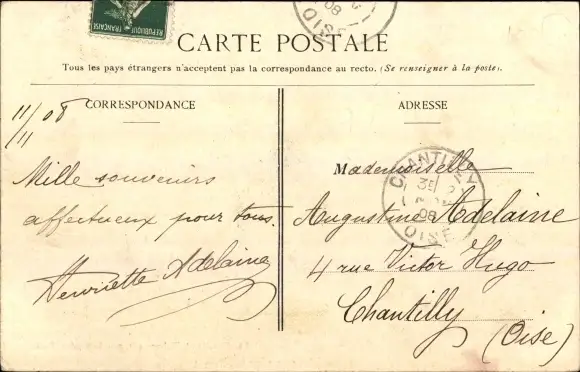 REPUBLIQUE FRANÇAISE
08
OISE
CARTE POSTALE
Tous les pays étrangers n'acceptent pas la correspondance au recto. (Se renseigner à la poste).
CORRESPONDANCE
11/08
11
Mille souvenirs
affectueux pour tous.
Henriette Adelaine
ADRESSE
Mademoiselle
Augustine Adelaine
4 rue Victor Hugo
Chantilly
(Oise)
CHANTILLY
08
OISE